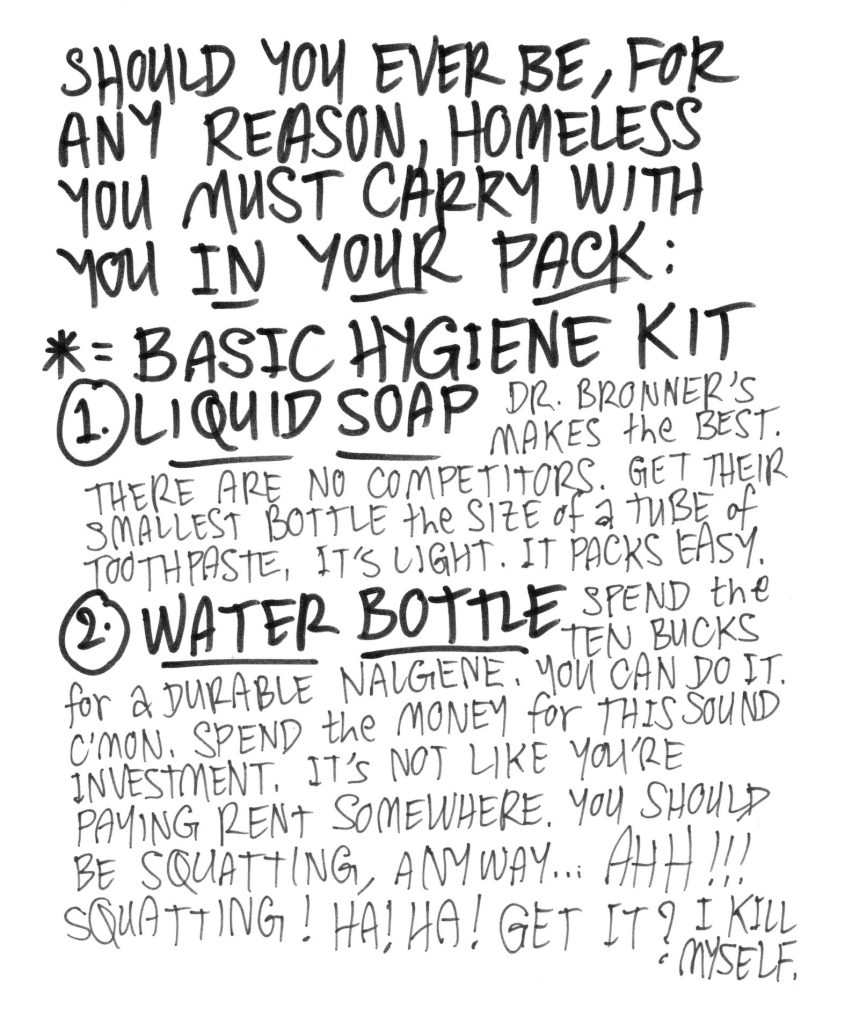 SHOULD YOU EVER BE, FOR
ANY REASON, HOMELESS
YOU MUST CARRY WITH
YOU IN YOUR PACK:
*= BASIC HYGIENE KIT
1. LIQUID SOAP DR. BRONNER'S
MAKES the BEST.
THERE ARE NO COMPETITORS. GET THEIR
SMALLEST BOTTLE the SIZE of a TUBE of
TOOTHPASTE, IT'S LIGHT. IT PACKS EASY.
2. WATER BOTTLE SPEND the
TEN BUCKS
for a DURABLE NALGENE. YOU CAN DO IT.
C'MON. SPEND the MONEY for THIS SOUND
INVESTMENT. IT'S NOT LIKE YOU'RE
PAYING RENT SOMEWHERE. YOU SHOULD
BE SQUATTING, ANYWAY... AHH!!!
SQUATTING! HA! HA! GET IT? I KILL
MYSELF.